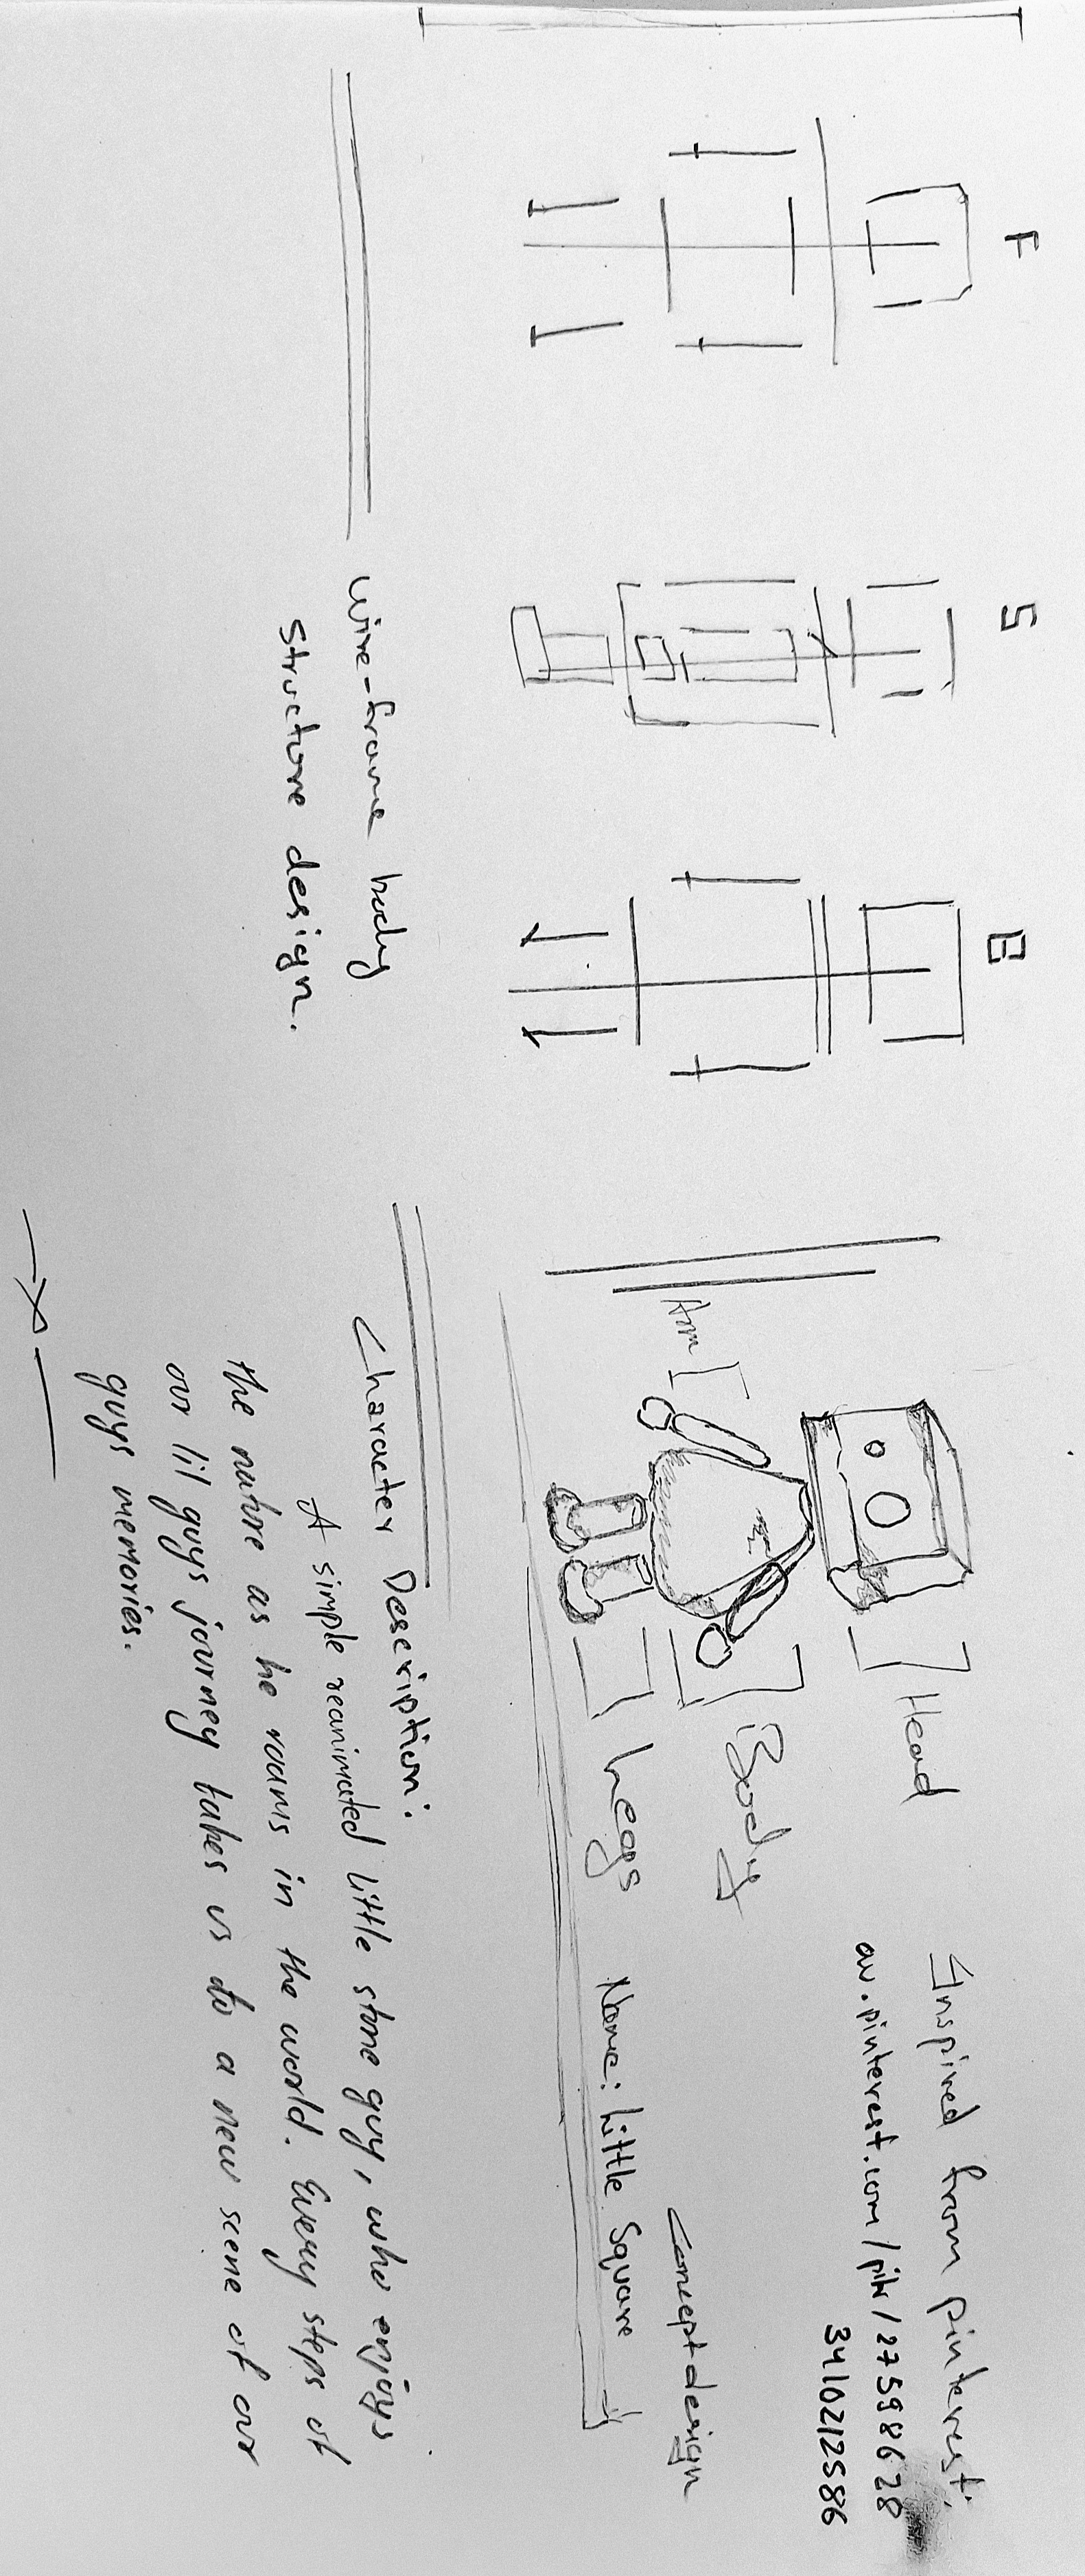 F
S
B
Wire-frame body
Structure design.
Head
Body
Arm
Legs
Inspired from pinterest:
au.pinterest.com/pin/27598628
3410212586
Concept design
Name: Little Square
Character Description:
A simple reanimated little stone guy, who enjoys
the nature as he roams in the world. Every steps of
our lil guys journey takes us to a new scene of our
guys memories.